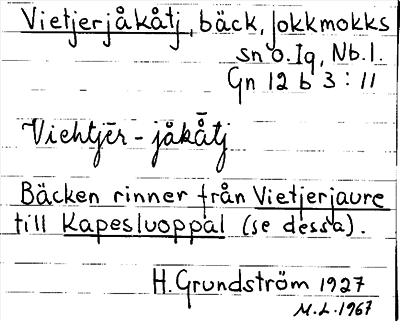 Vietjerjåkåtj, bäck, Jokkmokks
sn o. lg, Nb. l.
Gn 12 b 3 : 11
Viehtjēr - jåkå̄tj
Bäcken rinner från Vietjerjaure
till Kapesluoppal (se dessa).
H. Grundström 1927
M. L. 1967